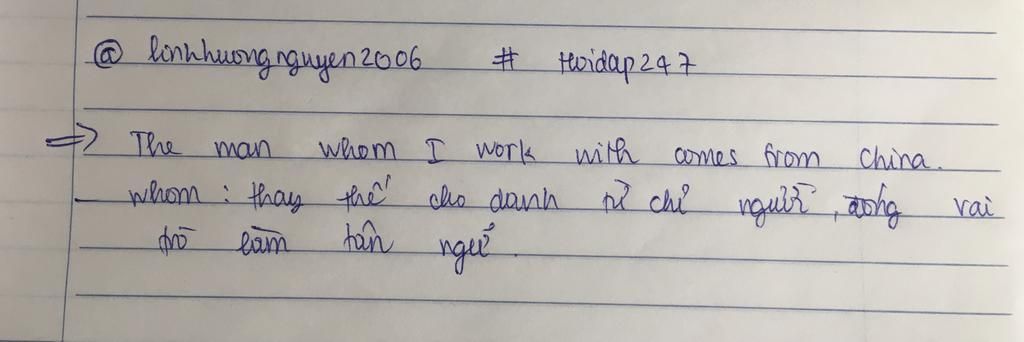 @ linhhuongnguyen2006 # Hoidap247
=> The man whom I work with comes from China.
whom : thay thế cho danh từ chỉ người, đóng vai
trò làm tân ngữ.